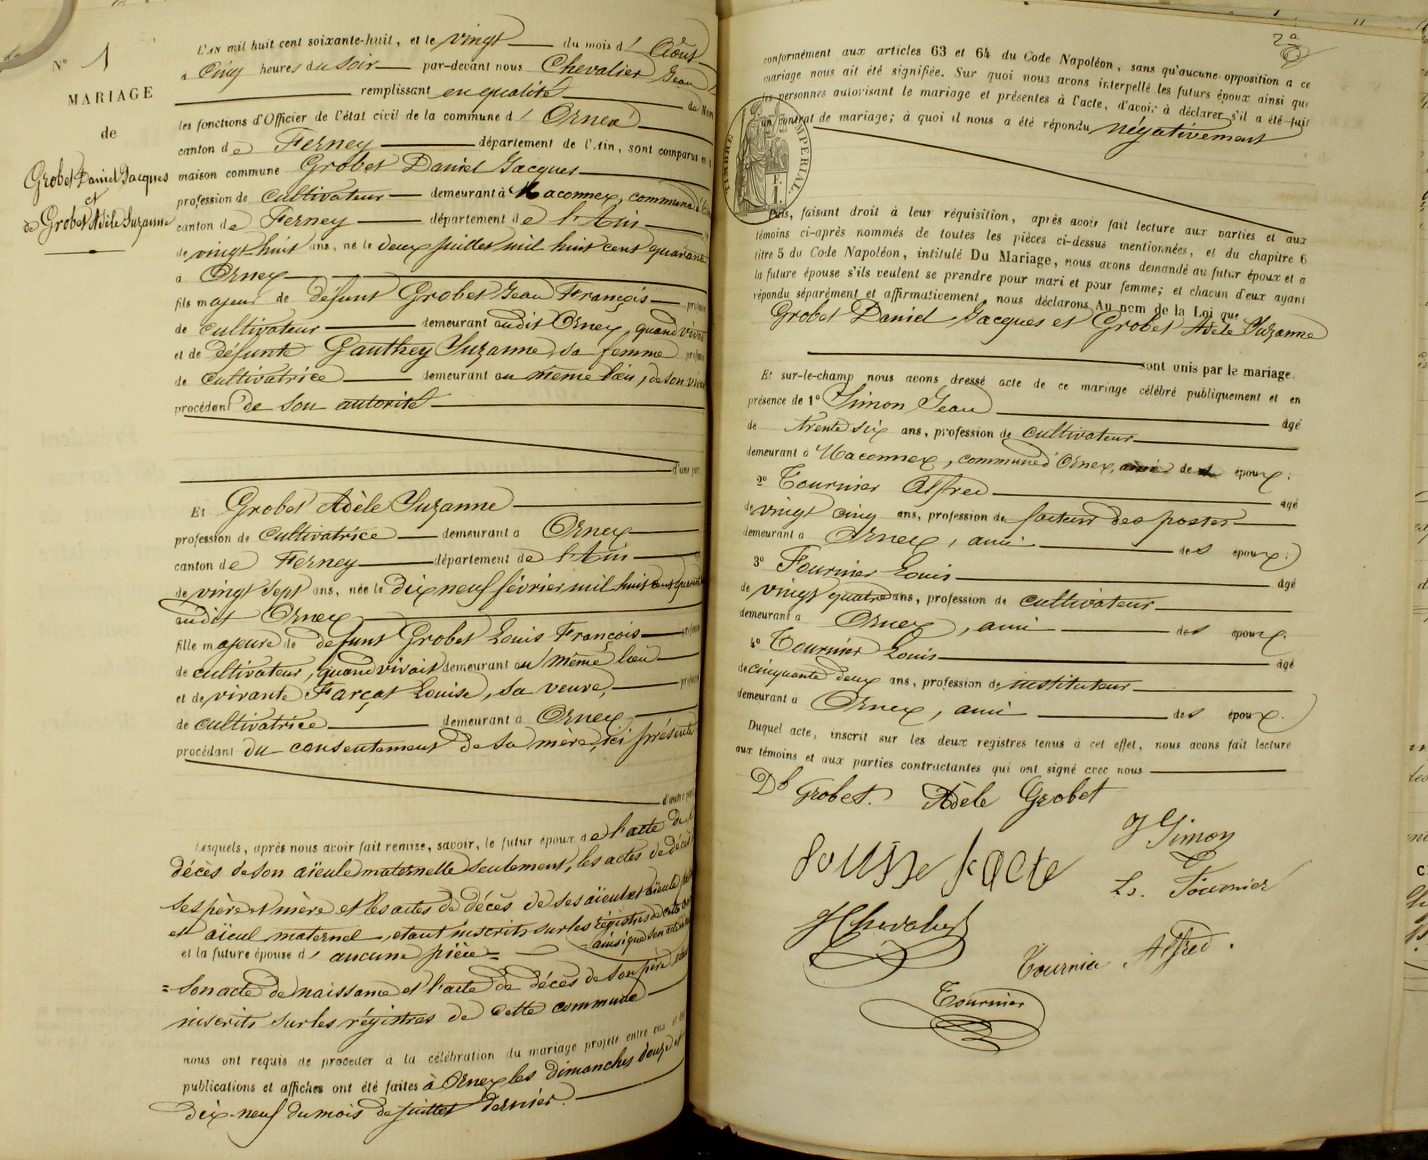 N° 1
MARIAGE
de
Grobet Daniel Jacques
et
de Grobet Adèle Suzanne
L'AN mil huit cent soixante-huit, et le vingt du mois d' Août
à cinq heures du soir par-devant nous Chevalier Jean
remplissant en qualité de
les fonctions d'Officier de l'état civil de la commune d' Ornex
canton de Ferney département de l'Ain, sont comparus en
maison commune Grobet Daniel Jacques
profession de cultivateur demeurant à Maconnex, commune d'
canton de Ferney département de l'Ain
de vingt-huit ans, né le deux juillet mil huit cent quarante
à Ornex
fils majeur de défunt Grobet Jean François
de cultivateur demeurant audit Ornex, quand
et de défunte Gauthey Suzanne, sa femme
de cultivatrice demeurant au même lieu, de son
procédant de son autorité
d'une part
Et Grobet Adèle Suzanne
profession de cultivatrice demeurant à Ornex
canton de Ferney département de l'Ain
de vingt sept ans, née le dix neuf février mil huit cent
audit Ornex
fille majeure de défunt Grobet Louis François
de cultivateur, quand vivait demeurant au même lieu
et de vivante Farçat Louise, sa veuve,
de cultivatrice demeurant à Ornex
procédant du consentement de sa mère, ici présente
d'autre part
Lesquels, après nous avoir fait remise, savoir, le futur époux de l'acte de
décès de son aïeule maternelle seulement, les actes de décès
de ses père et mère et les actes de décès de ses aïeul et aïeule
et aïeul maternel, étant inscrits sur les régistres de cette
ainsi que son acte
et la future épouse d' aucune pièce
= son acte de naissance et l'acte de décès de son père,
inscrits sur les régistres de cette commune
nous ont requis de procéder à la célébration du mariage projeté entre eux et
publications et affiches ont été faites à Ornex les dimanches douze et
dix-neuf du mois de juillet dernier.
2e
conformément aux articles 63 et 64 du Code Napoléon, sans qu'aucune opposition à ce
mariage nous ait été signifiée. Sur quoi nous avons interpellé les futurs époux ainsi que
les personnes autorisant le mariage et présentes à l'acte, d'avoir à déclarer s'il a été fait
un contrat de mariage; à quoi il nous a été répondu négativement
TIMBRE IMPERIAL
Puis, faisant droit à leur réquisition, après avoir fait lecture aux parties et aux
témoins ci-après nommés de toutes les pièces ci-dessus mentionnées, et du chapitre 6
titre 5 du Code Napoléon, intitulé Du Mariage, nous avons demandé au futur époux et à
la future épouse s'ils veulent se prendre pour mari et pour femme; et chacun d'eux ayant
répondu séparément et affirmativement, nous déclarons, Au nom de la Loi que
Grobet Daniel Jacques et Grobet Adèle Suzanne
sont unis par le mariage.
Et sur-le-champ nous avons dressé acte de ce mariage célébré publiquement et en
présence de 1° Simon Jean âgé
de trente six ans, profession de cultivateur
demeurant à Maconnex, commune d'Ornex, ami des époux;
2° Tournier Alfred âgé
de vingt cinq ans, profession de facteur des postes
demeurant à Ornex, ami des époux;
3° Fournier Louis âgé
de vingt quatre ans, profession de cultivateur
demeurant à Ornex, ami des époux.
4° Tournier Louis âgé
de cinquante deux ans, profession de instituteur
demeurant à Ornex, ami des époux.
Duquel acte, inscrit sur les deux registres tenus à cet effet, nous avons fait lecture
aux témoins et aux parties contractantes qui ont signé avec nous
Dl Grobet. Adèle Grobet
J Simon
Ls. Fournier
JChevalier
Tournier Alfred.
Tournier